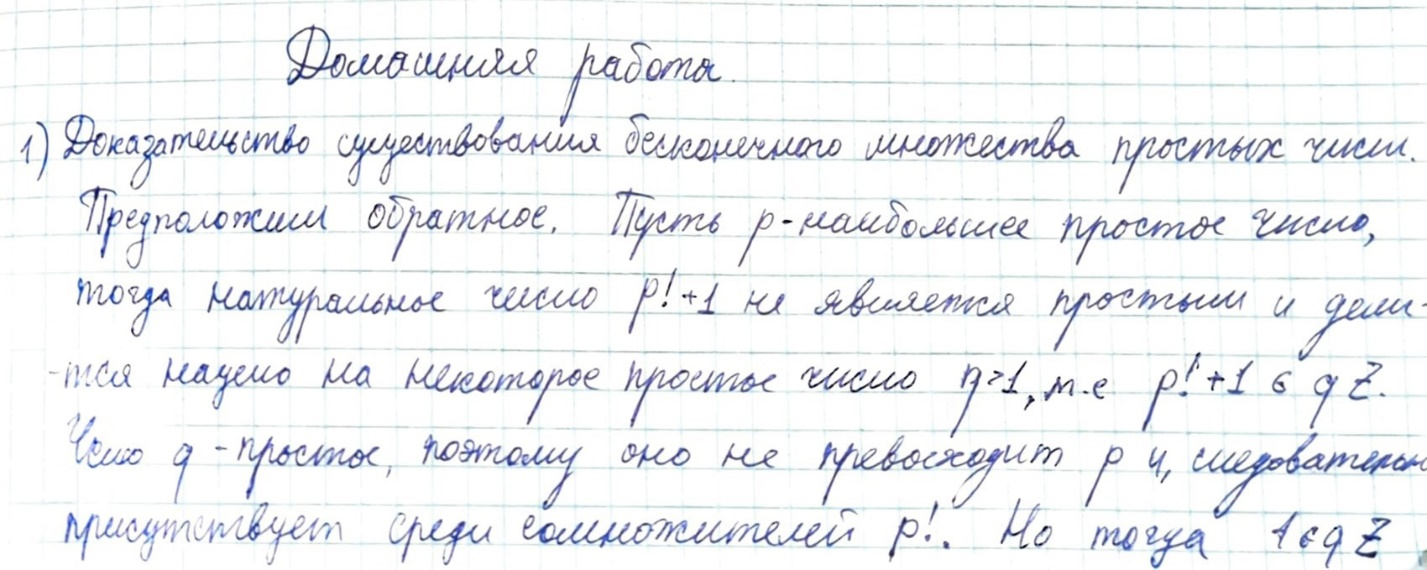 Домашняя работа.
1) Доказательство существования бесконечного множества простых чисел.
Предположим обратное. Пусть p - наибольшее простое число,
тогда натуральное число p!+1 не является простым и дели-
-тся нацело на некоторое простое число q>1, т.е p!+1 ∈ qZ.
Число q - простое, поэтому оно не превосходит p и, следовательно
присутствует среди сомножителей p!. Но тогда 1∈qZ